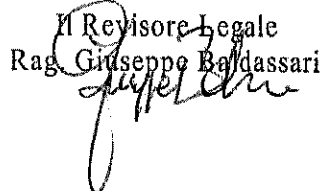 Il Revisore Legale
Rag. Giuseppe Baldassari